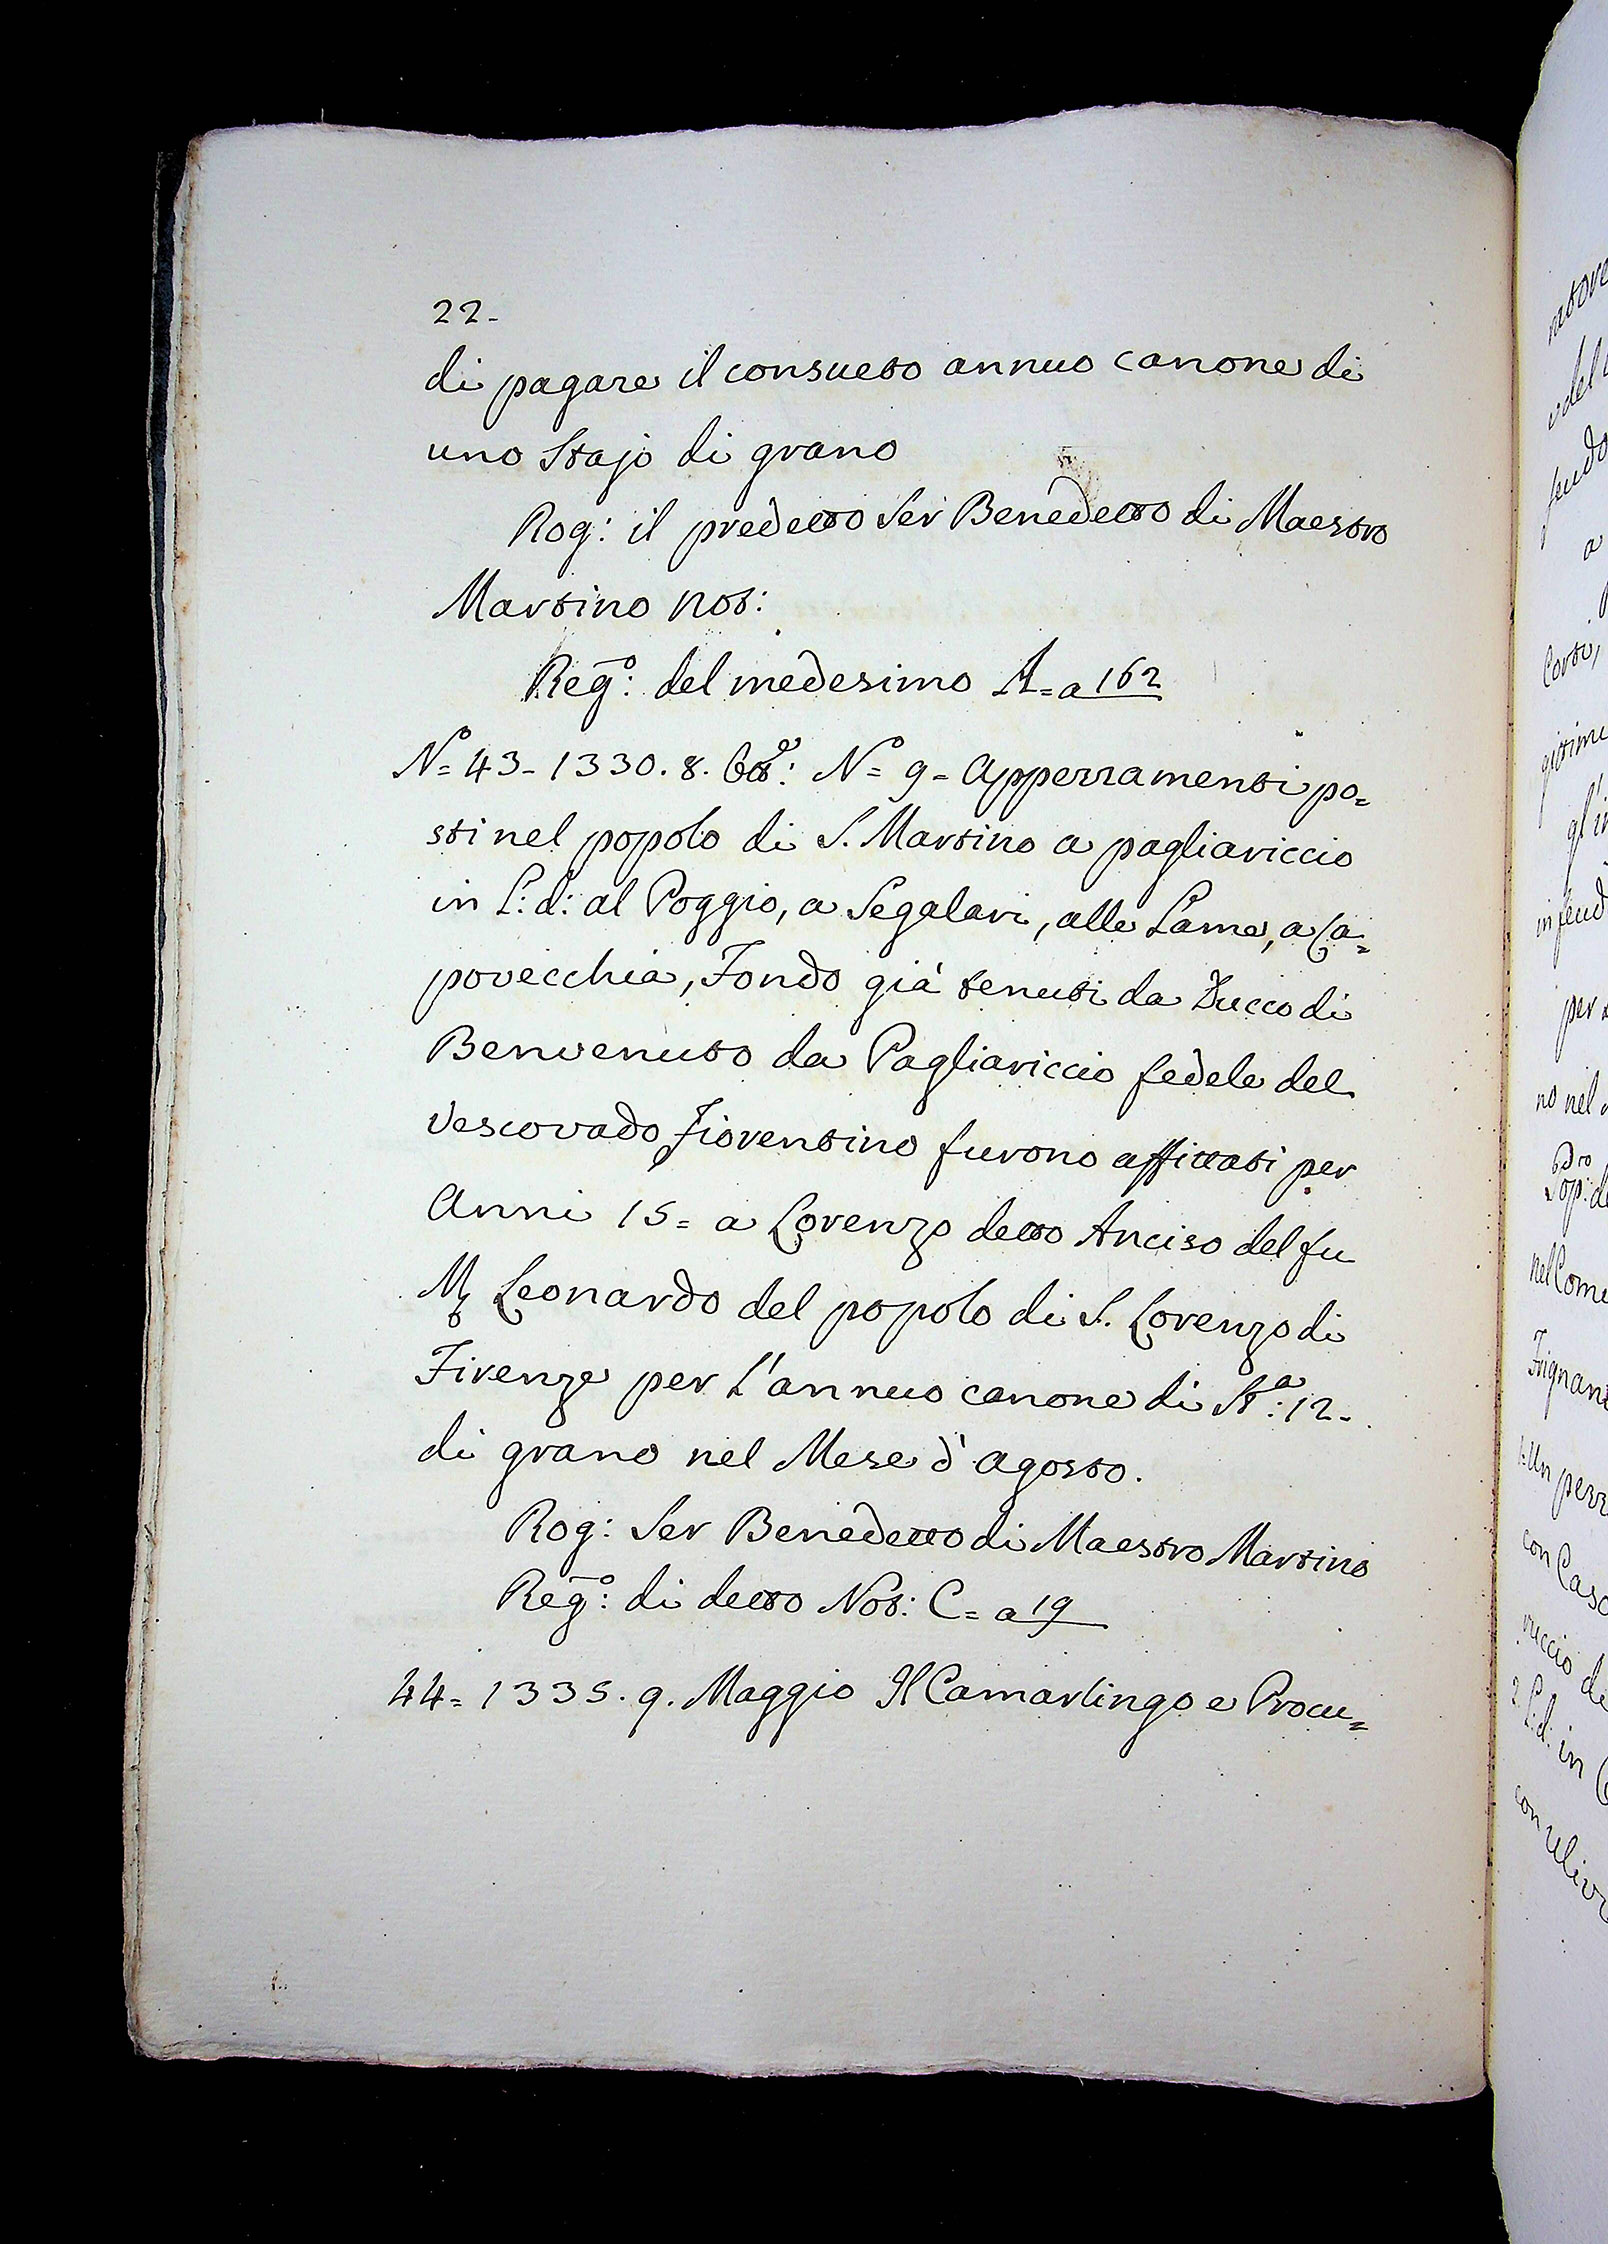 22-
di pagare il consueto annuo canone di
uno Stajo di grano
Rog: il predetto Ser Benedetto di Maestro
Martino Not:
Reg.º: del medesimo A= a 162
Nº= 43- 1330. 8. Nº= 9= Appezzamenti po=
sti nel popolo di S. Martino a pagliariccio
in L: d: al Poggio, a Segalari, alle Lame, a Ca=
povecchia, Fondo già tenuti da Zucco di
Benvenuto da Pagliariccio fedele del
Vescovado Fiorentino furono affittati per
Anni 15= a Lorenzo detto Anciso del fu
Leonardo del popolo di S. Lorenzo di
Firenze per l'annuo canone di Stª: 12-
di grano nel Mese d'agosto.
Rog: Ser Benedetto di Maestro Martino
Reg.º: di detto Not: C= a 19
44= 1335. 9. Maggio Il Camarlingo e Procu=
per
no nel
in feud
Corti,
nel Com
con Casc
ruccio de
2. L: d: in
con Uliv